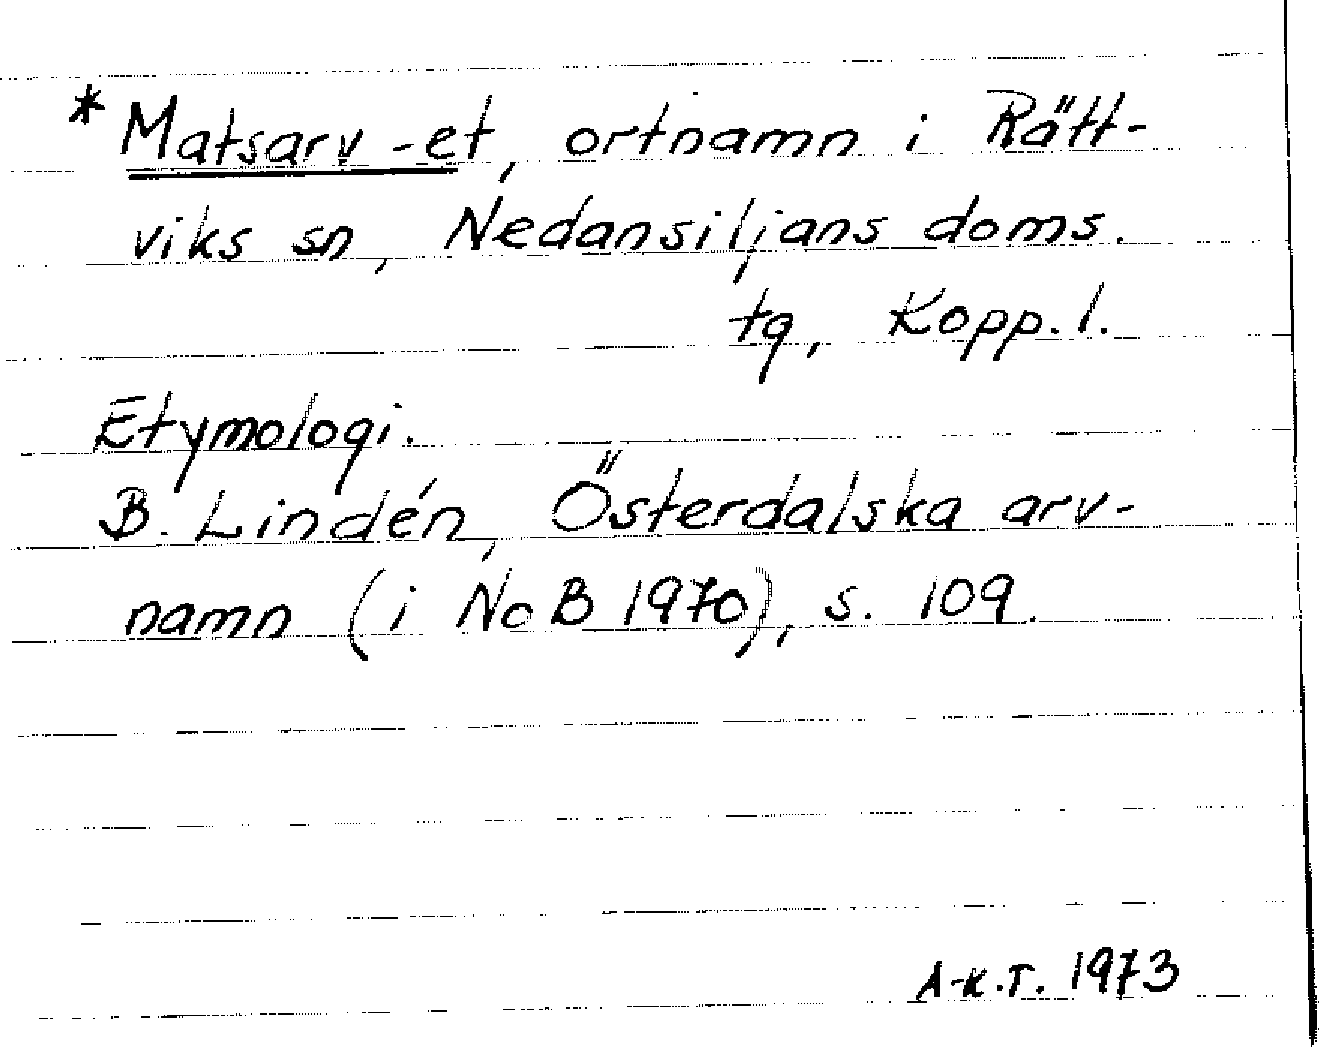 * Matsarv -et, ortnamn i Rätt-
viks sn, Nedansiljans doms.
tg, Kopp. l.
Etymologi.
B. Lindén, Österdalska arv-
namn (i NoB 1970), s. 109.
A-K.T. 1973